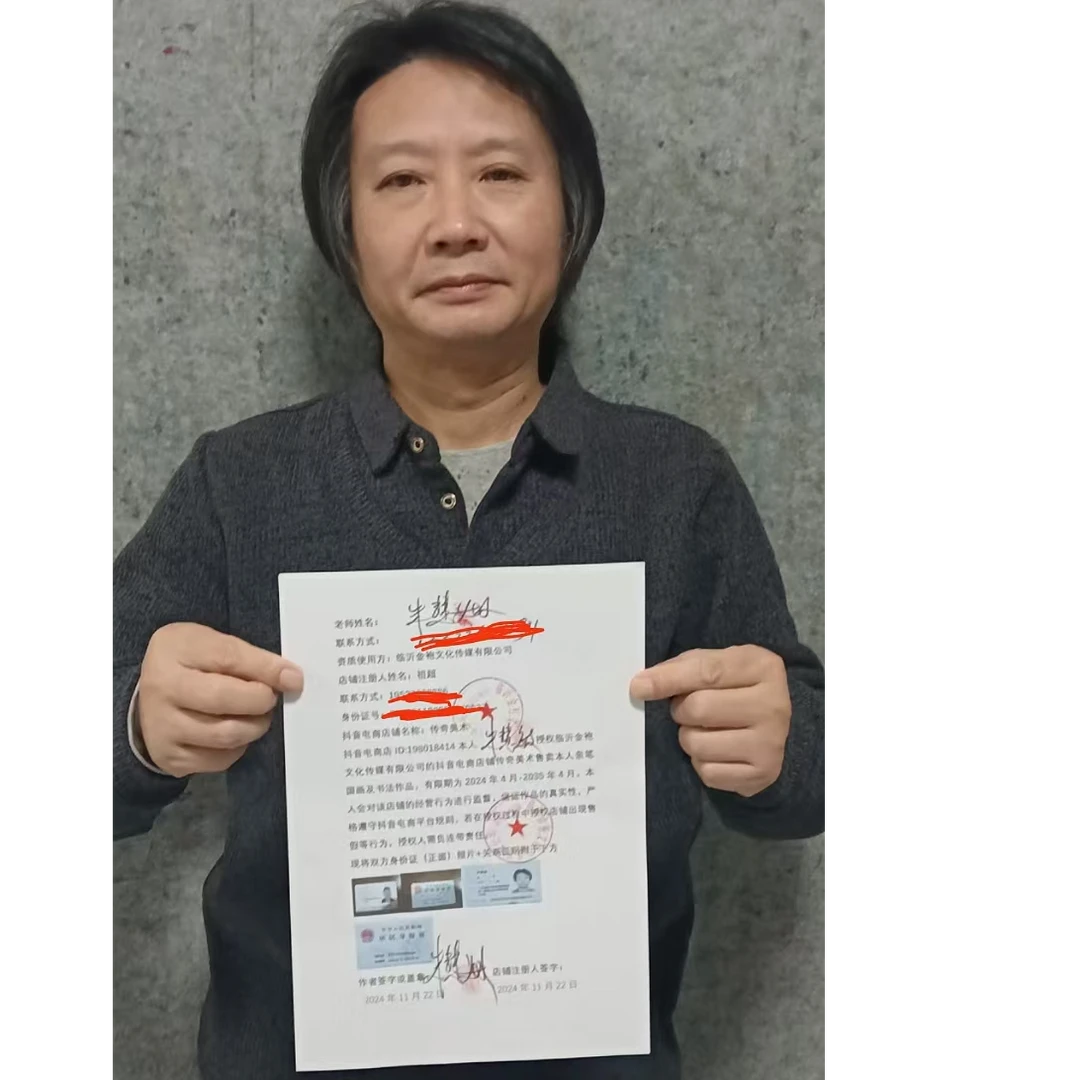 老师姓名：
联系方式：
资质使用方：临沂金袍文化传媒有限公司
店铺注册人姓名：祖超
联系方式：
身份证号
抖音电商店铺名称：传奇美术
抖音电商店ID:198018414本人 授权临沂金袍
文化传媒有限公司的抖音电商店铺传奇美术售卖本人亲笔
国画及书法作品，有限期为2024年4月-2035年4月。本
人会对该店铺的经营行为进行监督，保证作品的真实性，严
格遵守抖音电商平台规则，若在授权过程中授权店铺出现售
假等行为，授权人需负连带责任。
现将双方身份证（正面）照片+关系证明附于下方
作者签字或盖章 店铺注册人签字：
2024年11月22日 2024年11月22日